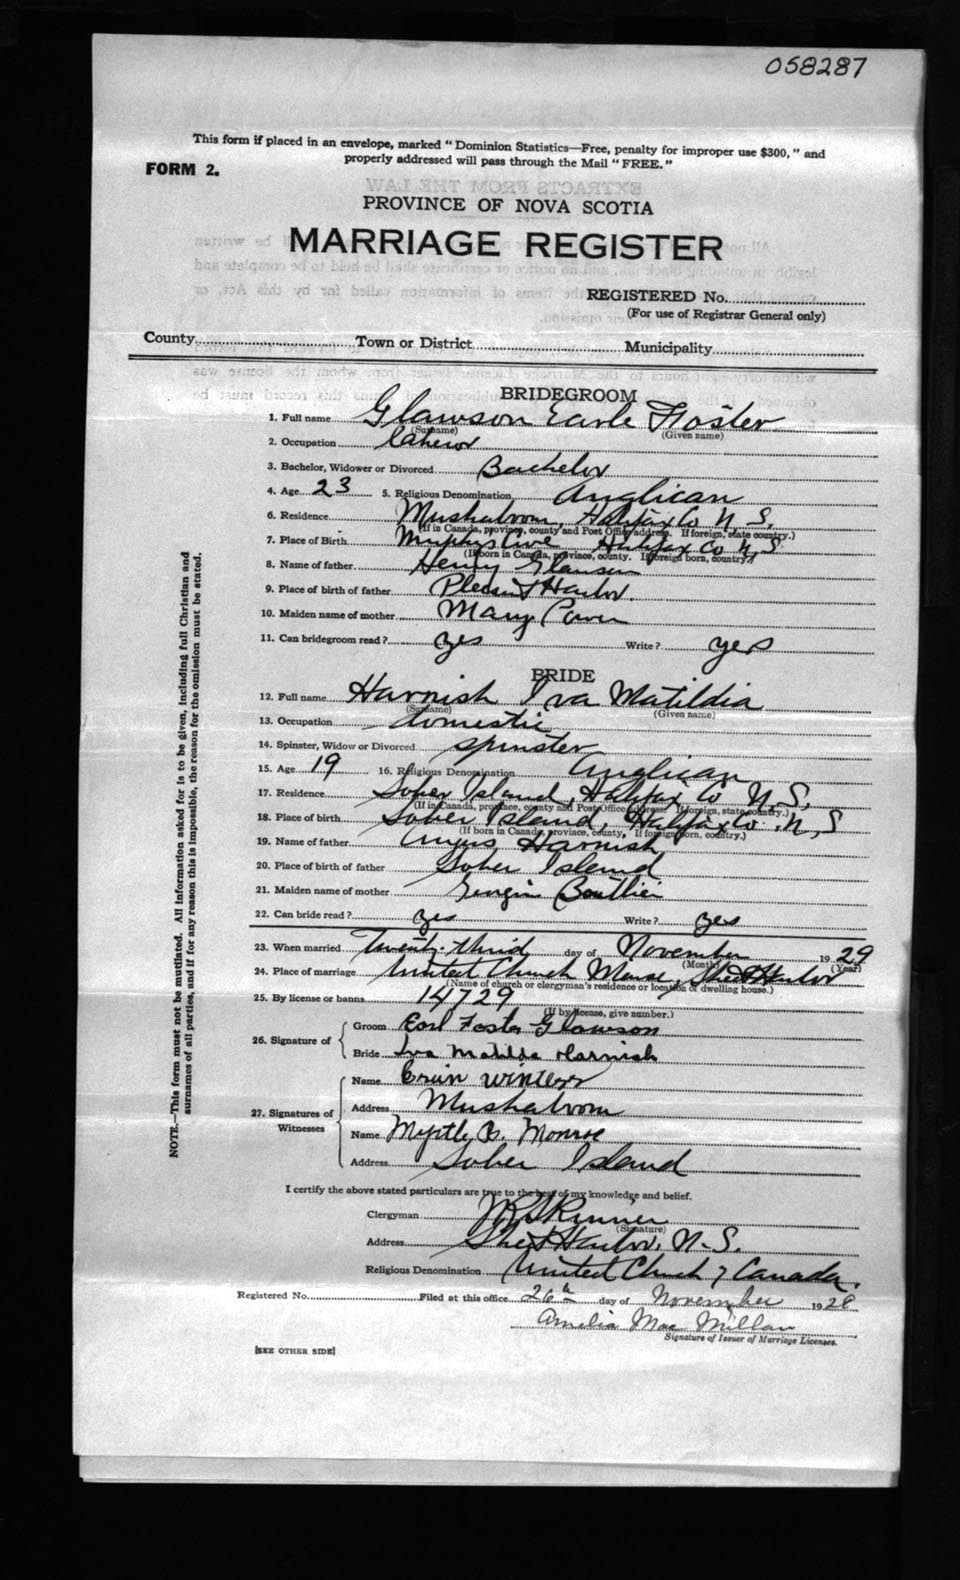 058287
This form if placed in an envelope, marked " Dominion Statistics—Free, penalty for improper use $300, " and
properly addressed will pass through the Mail " FREE."
FORM 2.
PROVINCE OF NOVA SCOTIA
MARRIAGE REGISTER
REGISTERED No.
(For use of Registrar General only)
County Town or District Municipality
BRIDEGROOM
1. Full name Glawson Earle Foster
(Surname) (Given name)
2. Occupation
3. Bachelor, Widower or Divorced Bachelor
4. Age 23 5. Religious Denomination Anglican
6. Residence Mushaboom, Halifax Co N. S.
(If in Canada, province, county and Post Office address. If foreign, state country.)
7. Place of Birth Murphys Cove Halifax Co N, S
(If born in Canada, province, county. If foreign born, country.)
8. Name of father Henry Glawson
9. Place of birth of father Pleasant Harbor.
10. Maiden name of mother Mary
11. Can bridegroom read? yes Write? yes
BRIDE
12. Full name Harnish Iva Matildia
(Surname) (Given name)
13. Occupation domestic
14. Spinster, Widow or Divorced spinster
15. Age 19 16. Religious Denomination Anglican
17. Residence Sober Island, Halifax Co N. S.
(If in Canada, province, county and Post Office address. If foreign, state country.)
18. Place of birth Sober Island, Halifax Co. N, S
(If born in Canada, province, county, If foreign born, country.)
19. Name of father Angus Harnish
20. Place of birth of father Sober Island
21. Maiden name of mother Boutlier
22. Can bride read? yes Write? yes
23. When married Twenty-third day of November 1929
(Month) (Year)
24. Place of marriage United Church Manse, Sheet Harbor
(Name of church or clergyman's residence or location of dwelling house.)
25. By license or banns 14729
(If by license, give number.)
26. Signature of
Groom Earl Foster Glawson
Bride Iva Matilda Harnish
27. Signatures of Witnesses
Name Winters
Address Mushaboom
Name Myrtle B. Monroe
Address Sober Island
I certify the above stated particulars are true to the best of my knowledge and belief.
Clergyman Skinner
(Signature)
Address Sheet Harbor, N. S.
Religious Denomination United Church of Canada.
Registered No. Filed at this office 26th day of November 1929
Amelia Mac Millan
Signature of Issuer of Marriage Licenses.
[SEE OTHER SIDE]
NOTE.—This form must not be mutilated. All information asked for is to be given, including full Christian and
surnames of all parties, and if for any reason this is impossible, the reason for the omission must be stated.